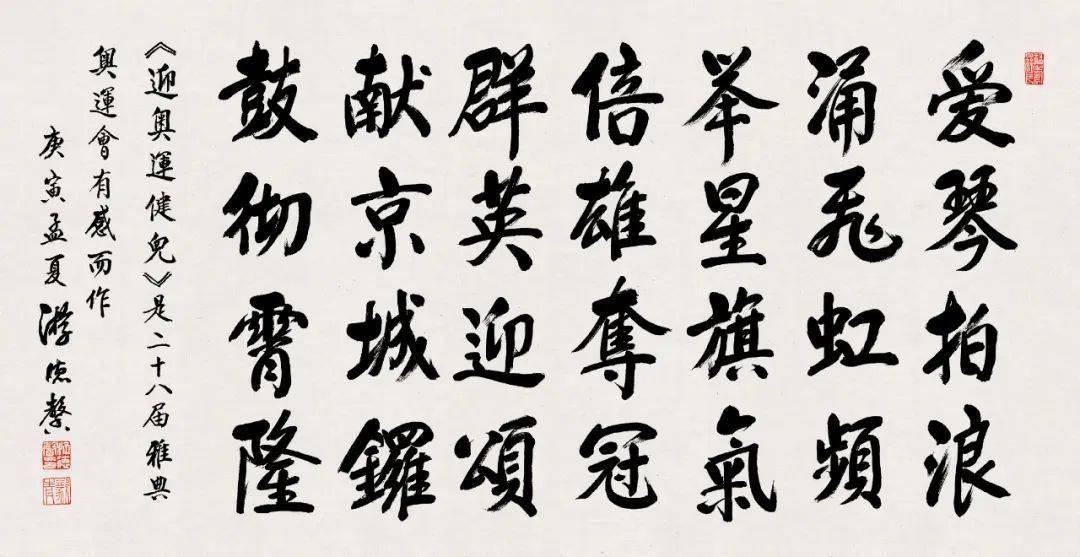 爱琴拍浪
涌飛虹頻
举星旗氣
倍雄奪冠
群英迎頌
献京城鑼
鼓彻霄隆
《迎奥運健兒》是二十八届雅典
奥運會有感而作
庚寅孟夏 游德馨